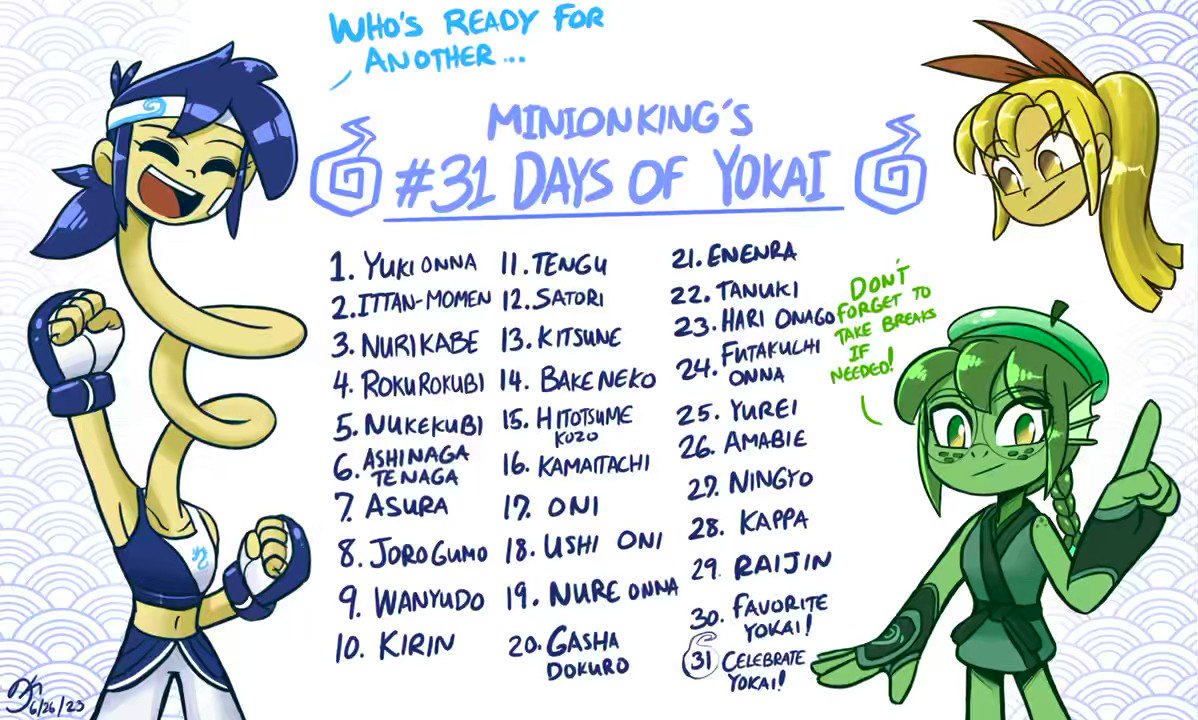 WHO'S READY FOR
ANOTHER...
MINIONKING'S
#31 DAYS OF YOKAI
1. YUKI ONNA
2. ITTAN-MOMEN
3. NURIKABE
4. ROKUROKUBI
5. NUKEKUBI
6. ASHINAGA
TENAGA
7. ASURA
8. JOROGUMO
9. WANYUDO
10. KIRIN
11. TENGU
12. SATORI
13. KITSUNE
14. BAKENEKO
15. HITOTSUME
KOZO
16. KAMAITACHI
17. ONI
18. USHI ONI
19. NURE ONNA
20. GASHA
DOKURO
21. ENENRA
22. TANUKI
23. HARI ONAGO
24. FUTAKUCHI
ONNA
25. YUREI
26. AMABIE
27. NINGYO
28. KAPPA
29. RAIJIN
30. FAVORITE
YOKAI!
31 CELEBRATE
YOKAI!
DON'T
FORGET TO
TAKE BREAKS
IF
NEEDED!
6/26/23